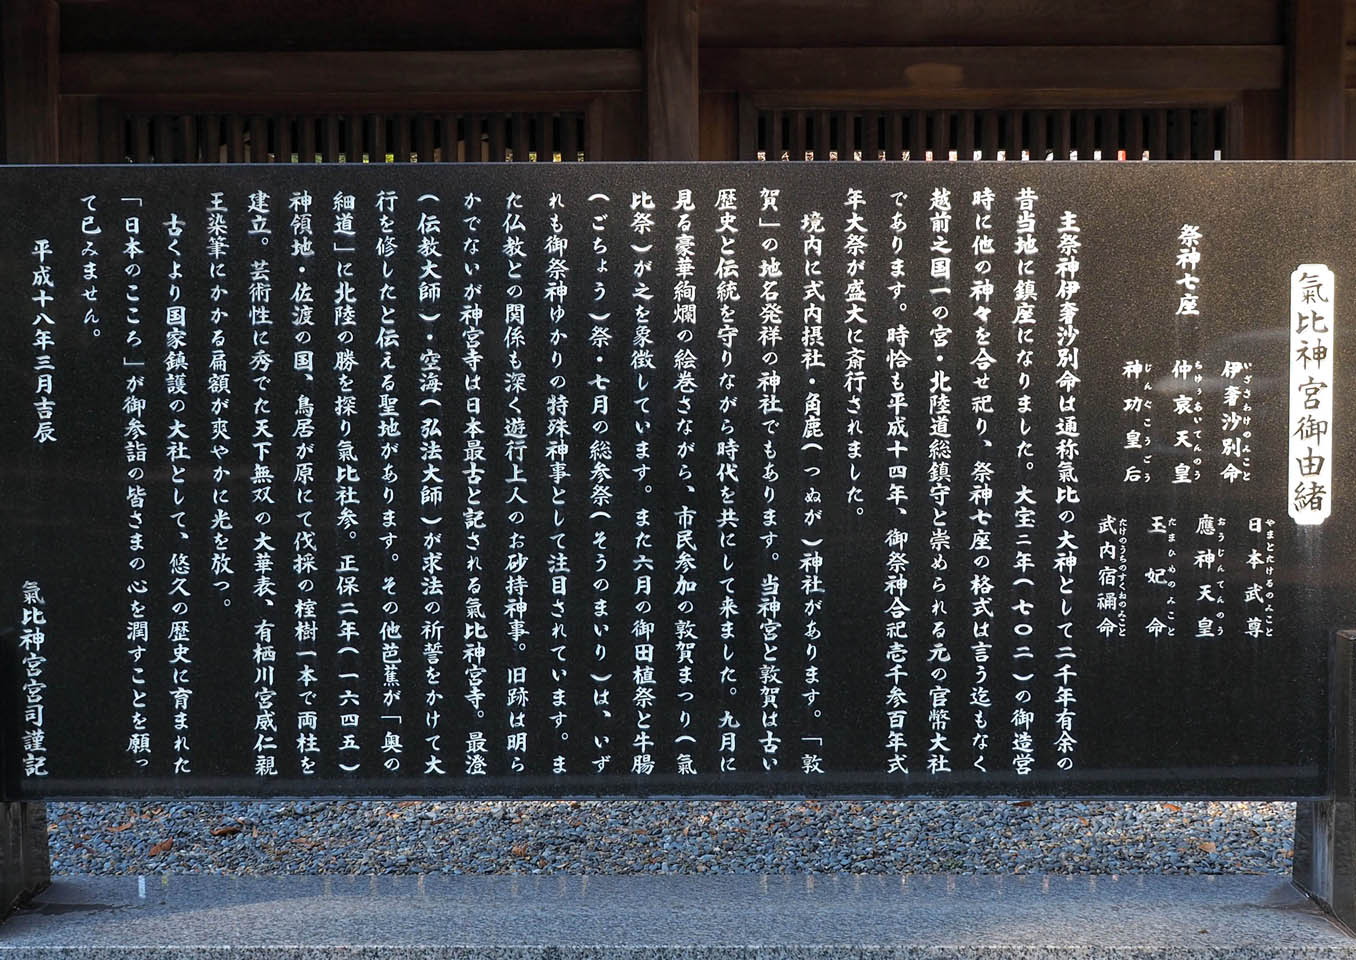 氣比神宮御由緒
祭神七座
伊奢沙別命
いざさわけのみこと
仲哀天皇
ちゅうあいてんのう
神功皇后
じんぐうこうごう
日本武尊
やまとたけるのみこと
應神天皇
おうじんてんのう
玉妃命
たまひめのみこと
武内宿禰命
たけのうちのすくねのみこと
主祭神伊奢沙別命は通称氣比の大神として二千年有余の
昔当地に鎮座になりました。大宝二年(七〇二)の御造営
時に他の神々を合せ祀り、祭神七座の格式は言う迄もなく
越前之国一の宮・北陸道総鎮守と崇められる元の官幣大社
であります。時恰も平成十四年、御祭神合祀壱千参百年式
年大祭が盛大に斎行されました。
境内に式内摂社・角鹿(つぬが)神社があります。「敦
賀」の地名発祥の神社でもあります。当神宮と敦賀は古い
歴史と伝統を守りながら時代を共にして来ました。九月に
見る豪華絢爛の絵巻さながら、市民参加の敦賀まつり(氣
比祭)が之を象徴しています。また六月の御田植祭と牛腸
(ごちょう)祭・七月の総参祭(そうのまいり)は、いず
れも御祭神ゆかりの特殊神事として注目されています。ま
た仏教との関係も深く遊行上人のお砂持神事。旧跡は明ら
かでないが神宮寺は日本最古と記される氣比神宮寺。最澄
(伝教大師)・空海(弘法大師)が求法の祈誓をかけて大
行を修したと伝える聖地があります。その他芭蕉が「奥の
細道」に北陸の勝を探り氣比社参。正保二年(一六四五)
神領地・佐渡の国、鳥居が原にて伐採の榁樹一本で両柱を
建立。芸術性に秀でた天下無双の大華表、有栖川宮威仁親
王染筆にかかる扁額が爽やかに光を放つ。
古くより国家鎮護の大社として、悠久の歴史に育まれた
「日本のこころ」が御参詣の皆さまの心を潤すことを願っ
て已みません。
平成十八年三月吉辰
氣比神宮宮司謹記